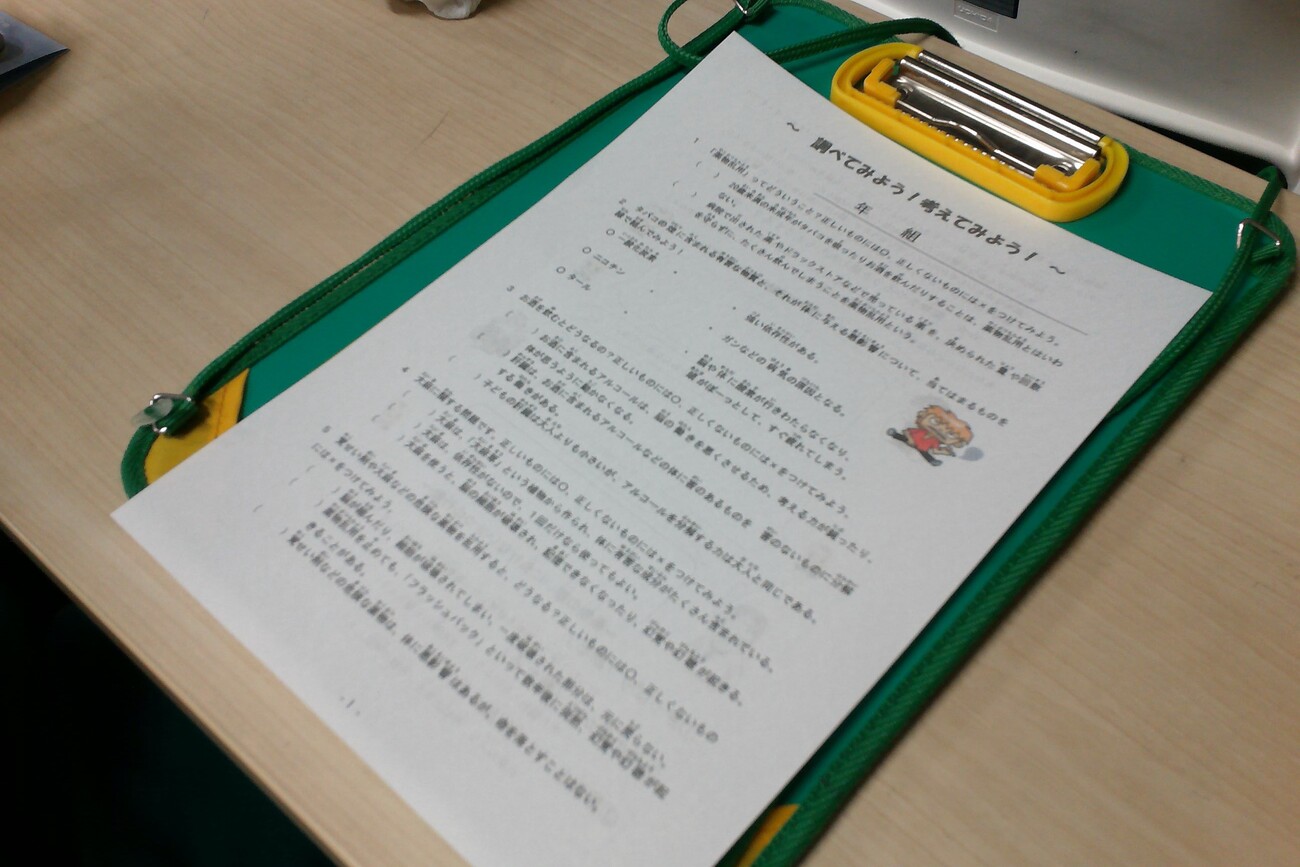 ～ 調べてみよう！考えてみよう！ ～
年 組
1 「薬物乱用」ってどういうこと？正しいものには○、正しくないものには×をつけてみよう。
( ) 20歳未満の未成年がタバコを吸ったりお酒を飲んだりすることは、薬物乱用とはいわ
ない。
( ) 病院で出された薬やドラックストアなどで売っている薬を、決められた量や回数
を守らずに、たくさん飲んでしまうことを薬物乱用という。
2 タバコの煙に含まれる有害な物質と、それが体に与える悪影響について、当てはまるものを
線で結んでみよう！
○ 一酸化炭素 ・ ・ 強い依存性がある。
○ ニコチン ・ ・ ガンなどの病気の原因となる。
○ タール ・ ・ 脳や体に酸素が行きわたらなくなり、
頭がぼーっとして、すぐ疲れてしまう。
3 お酒を飲むとどうなるの？正しいものには○、正しくないものには×をつけてみよう。
( ) お酒に含まれるアルコールは、脳の働きを悪くさせるため、考える力が減ったり、
体が思うように動かなくなる。
( ) 肝臓は、お酒に含まれるアルコールなどの体に害のあるものを 害のないものに分解
する働きがある。
( ) 子どもの肝臓は大人よりも小さいが、アルコールを分解する力は大人と同じである。
4 大麻に関する問題です。正しいものには○、正しくないものには×をつけてみよう。
( ) 大麻は、「大麻草」という植物から作られ、体に有害な成分がたくさん含まれている。
( ) 大麻は、依存性がないので、1回だけなら使ってもよい。
( ) 大麻を使うと、脳の細胞が破壊され、記憶できなくなったり、幻覚や幻聴が起きる。
5 覚せい剤や大麻などの危険な薬物を乱用すると、どうなる？正しいものには○、正しくないもの
には×をつけてみよう。
( ) 脳が縮んだり、細胞が破壊されてしまい、一度破壊された部分は、元に戻らない。
( ) 薬物乱用を止めても、「フラッシュバック」といって数年後に突然、幻覚や幻聴が起
きることがある。
( ) 覚せい剤などの危険な薬物は、体に悪影響はあるが、命を落とすことはない。
- 1 -